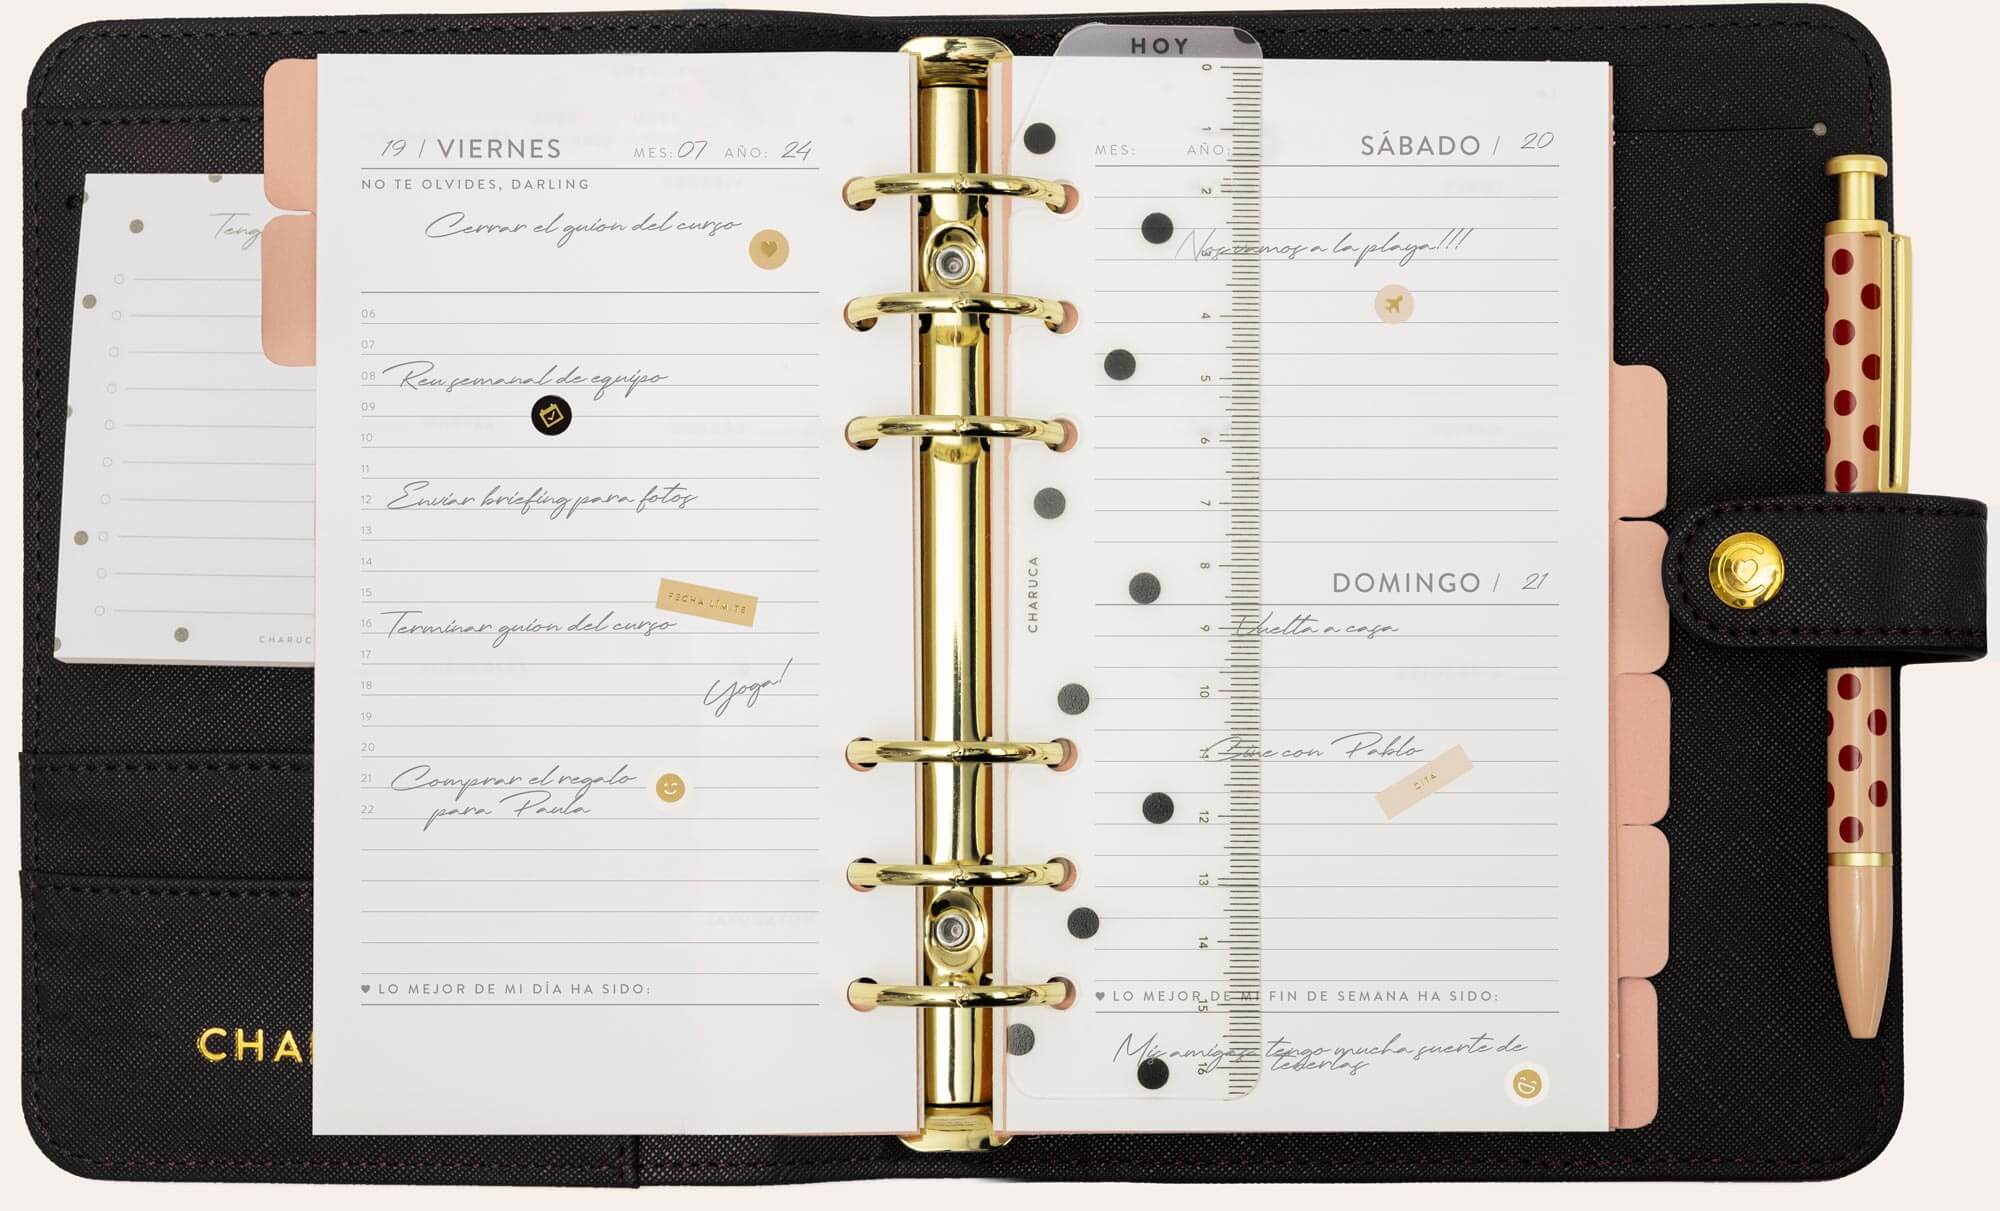 Teng
CHARUC
CHA
19 / VIERNES MES: 07 AÑO: 24
NO TE OLVIDES, DARLING
Cerrar el guion del curso
06
07
08 Reu semanal de equipo
09
10
11
12 Enviar briefing para fotos
13
14
15 FECHA LÍMITE
16 Terminar guion del curso
17
18 Yoga!
19
20
21 Comprar el regalo
22 para Paula
LO MEJOR DE MI DÍA HA SIDO:
HOY
0
1
2
3
4
5
6
7
8
9
10
11
12
13
14
15
16
CHARUCA
MES: AÑO: SÁBADO / 20
Nos vamos a la playa!!!
DOMINGO / 21
Vuelta a casa
Cine con Pablo
CITA
LO MEJOR DE MI FIN DE SEMANA HA SIDO:
Mis amigas, tengo mucha suerte de
tenerlas